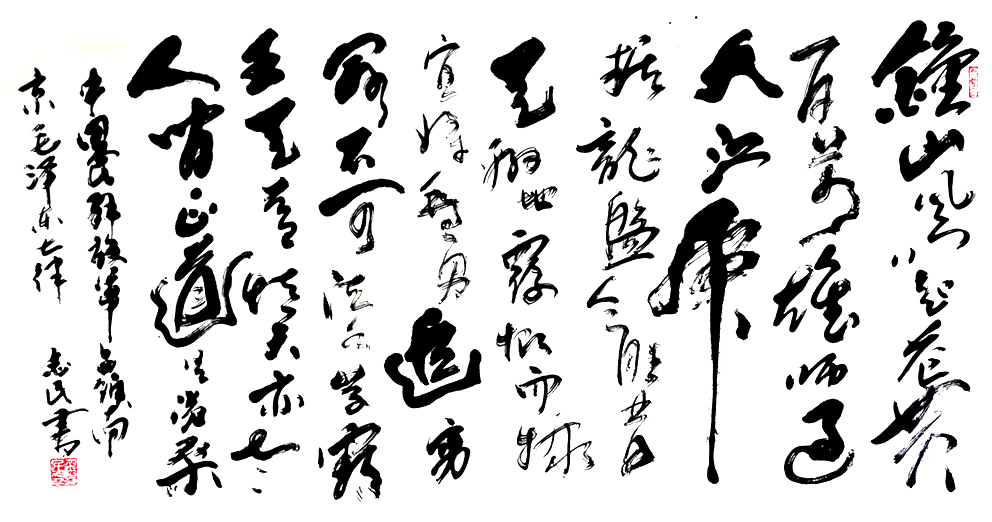 鐘山風雨起蒼黄
百萬雄師過
大江虎
据龍盤今勝昔
天翻地覆慨而慷
宜将剩勇追窮
寇不可沽名學霸
王天若情天亦老
人間正道是滄桑
中國人民解放軍占領南
京毛泽东七律 志民書